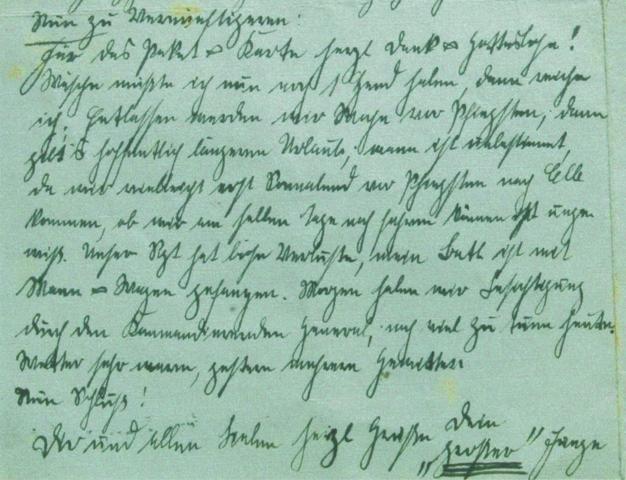 Nun zu Vernünftigeren:
Für das Paket u. Karte herzl Dank u. Gotteslohn!
Wäsche müßte ich nun noch 1 Hemd haben, dann reiche
ich. Entlassen werden wir Woche vor Pfingsten, dann
gibt's hoffentlich längeren Urlaub, wann ist unbestimmt,
da wir vielleicht erst Sonnabend vor Pfingsten nach Celle
kommen, ob wir am selben Tage noch fahren können ist unge-
wiß. Unser Rgt hat hohe Verluste, mein Batl ist mit
Mann u. Wagen gefangen. Morgen haben wir Besichtigung
durch den Kommandierenden General, noch viel zu tun heute.
Wetter sehr warm, gestern mehrere Gewitter.
Nun Schluß!
Dir und allen Lieben herzl Grüße Dein
"großer" Junge